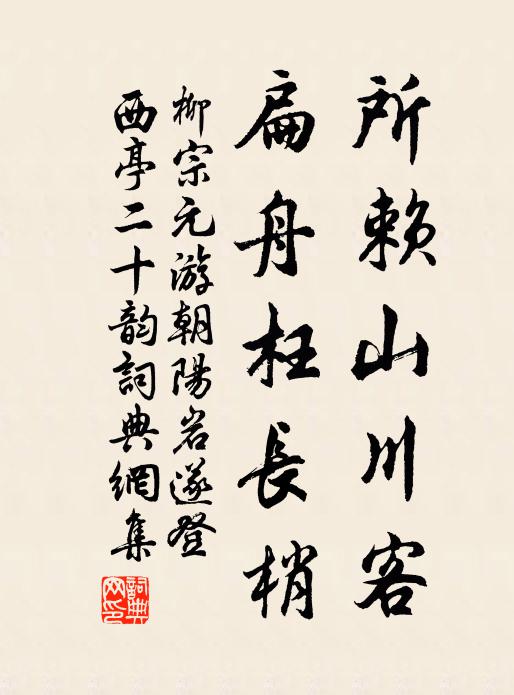 所賴山川客
扁舟枉長梢
柳宗元游朝陽岩遂登
西亭二十韵詞典網集
詞典網印